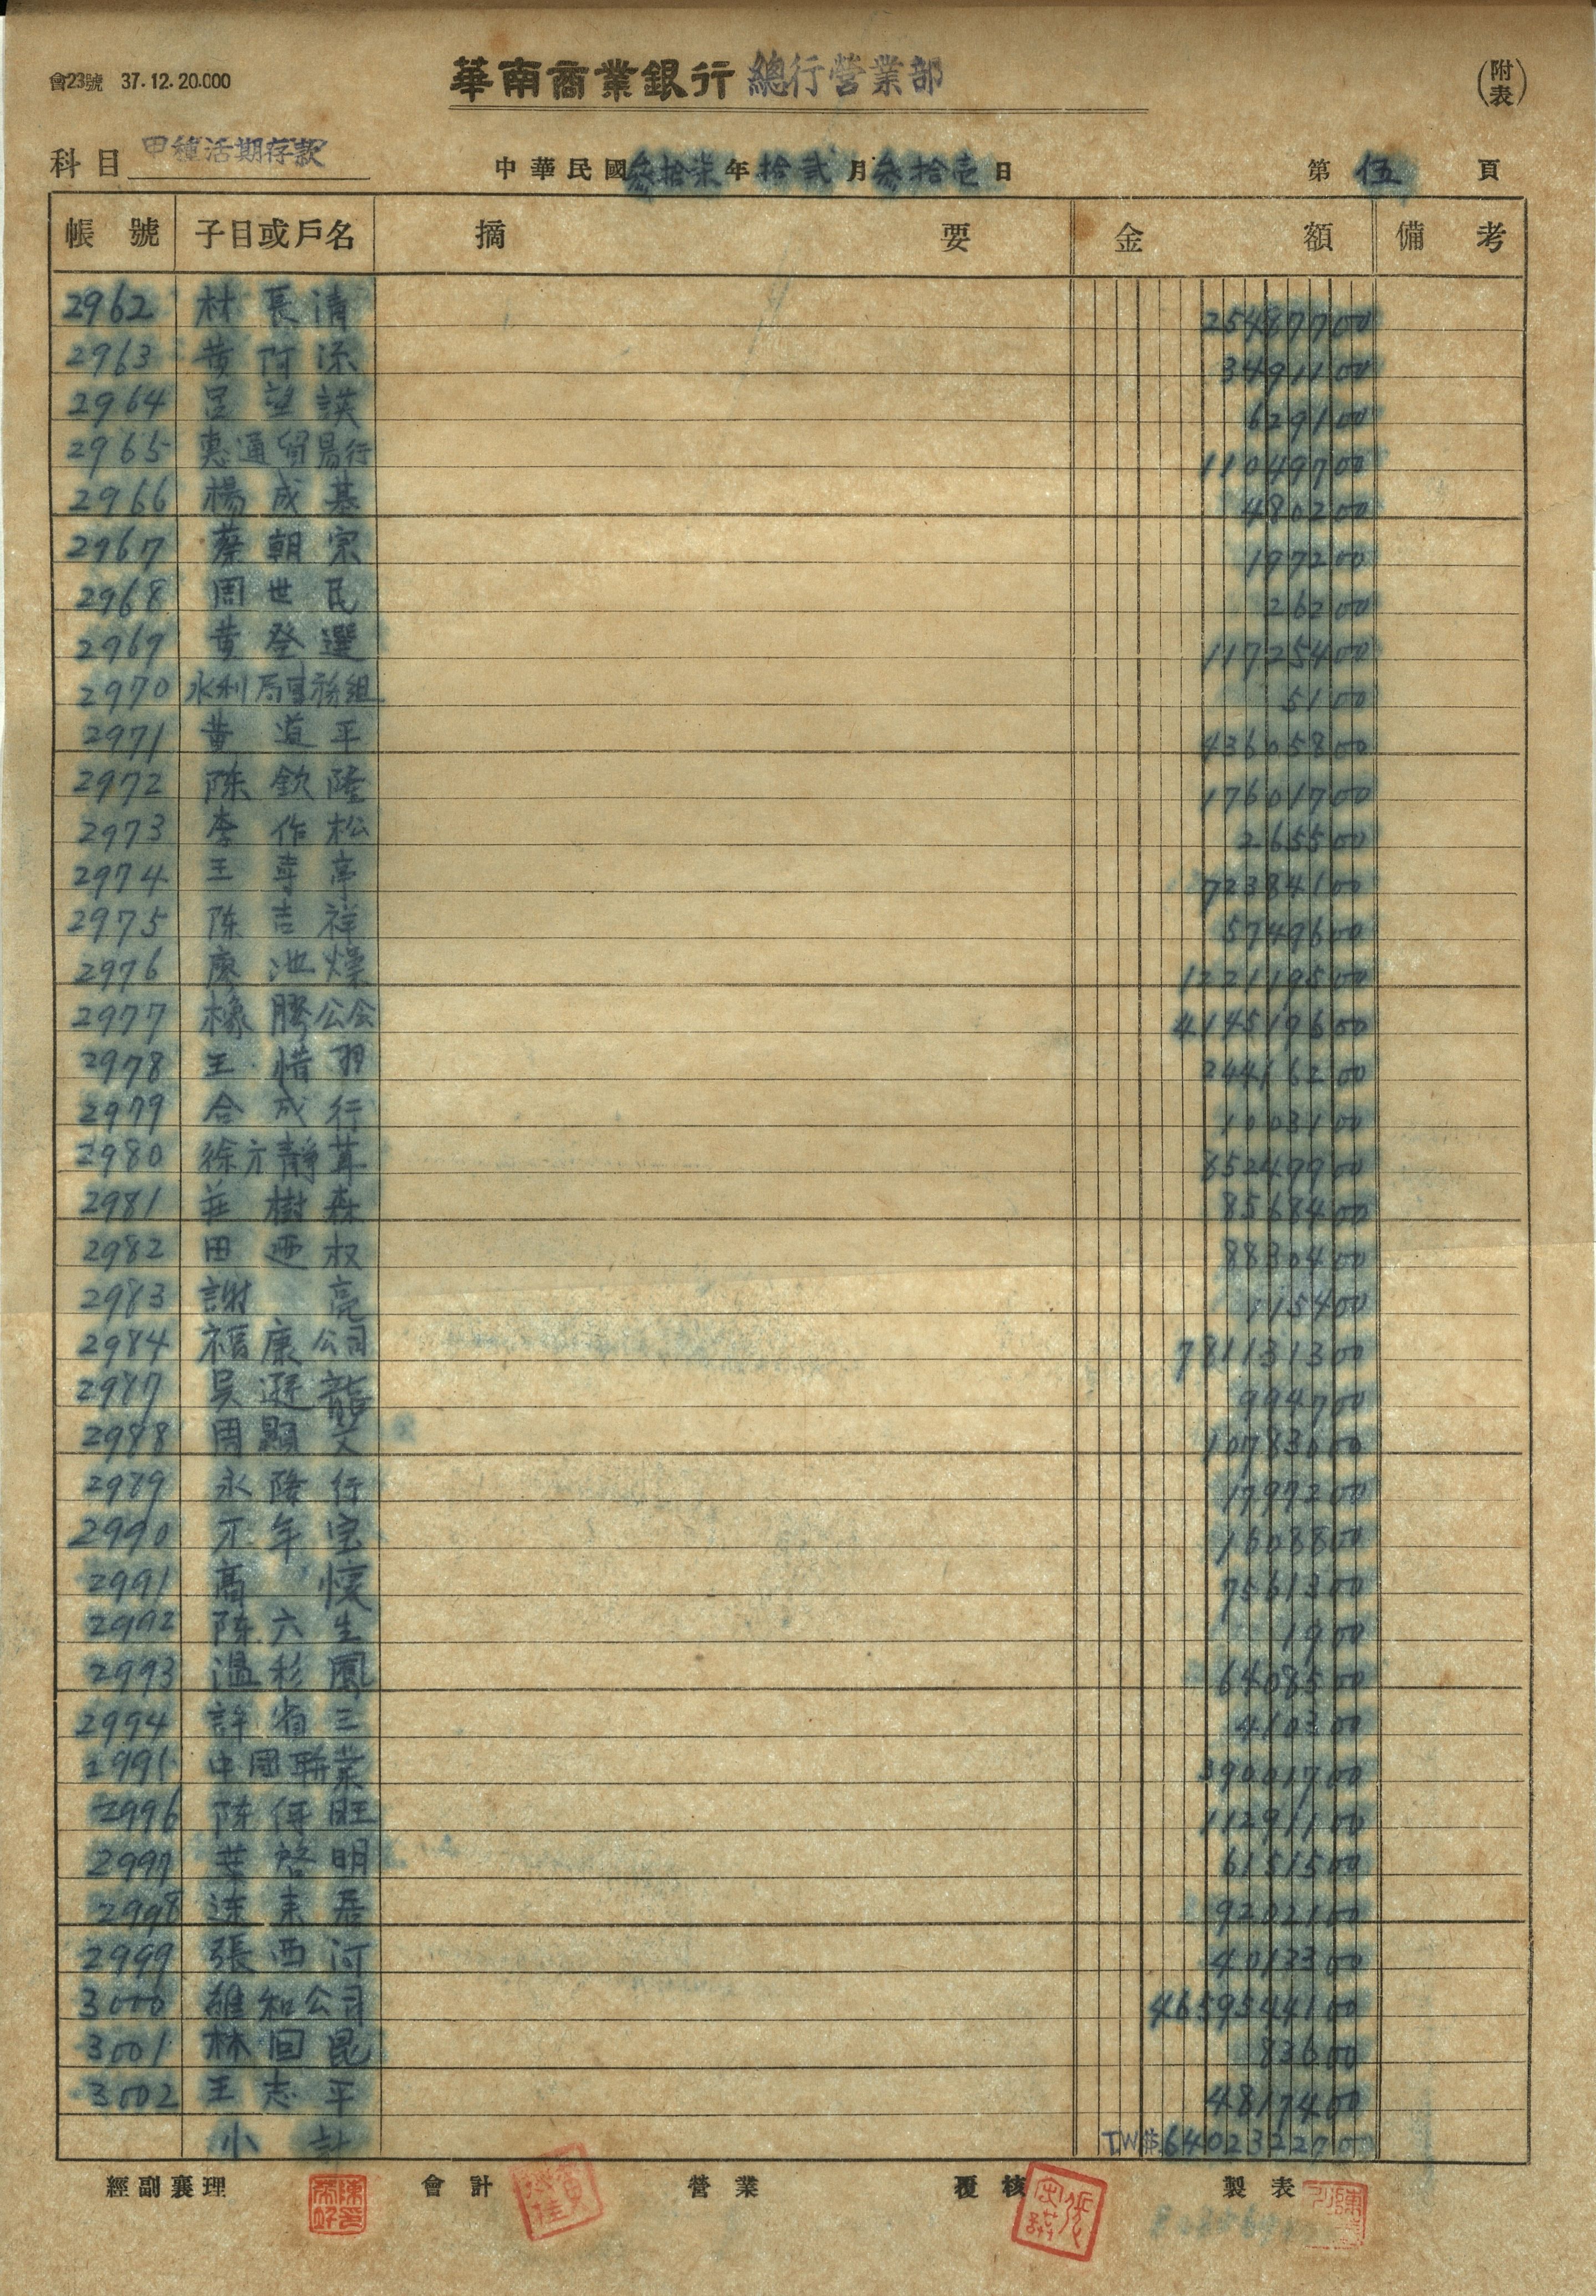 會23號 37.12.20.000
華南商業銀行 總行營業部
(附表)
科目 甲種活期存款 中華民國參拾柒年拾貳月參拾壱日 第伍頁
帳號 子目或戶名 摘要 金額 備考
2962 林長清 25487700
2963 黄阿添 3491100
2964 呂 629100
2965 惠通貿易行 11049700
2966 楊成基 480200
2967 蔡朝宗 197200
2968 周世民 26200
2969 黄登選 11725400
2970 水利局事務組 5100
2971 黄道平 43605800
2972 陈欽隆 17601700
2973 李作松 265500
2974 王亭 72384100
2975 陈吉祥 5749600
2976 廖池 122119500
2977 橡膠公会 414519600
2978 王惜羽 24416200
2979 合成行 1003100
2980 徐方靜 65249900
2981 莊樹森 8568400
2982 田权 8830400
2983 謝亮 315400
2984 福康公司 781131300
2987 吴遜龍 994700
2988 周顯文 10783000
2989 永隆行 1797200
2990 年宝 1608800
2991 高懷 7561300
2992 陈六生 1900
2993 溫彩鳳 6408500
2994 許省三 410300
2995 中國聯業 39001700
2996 陈得旺 11291100
2997 葉啓明 6151500
2998 連来居 9202100
2999 張西河 4013300
3000 雄和公司 4659544100
3001 林回昆 83600
3002 王志平 4817400
小計 TW$6402322700
經副襄理 會計 營業 覆核 製表